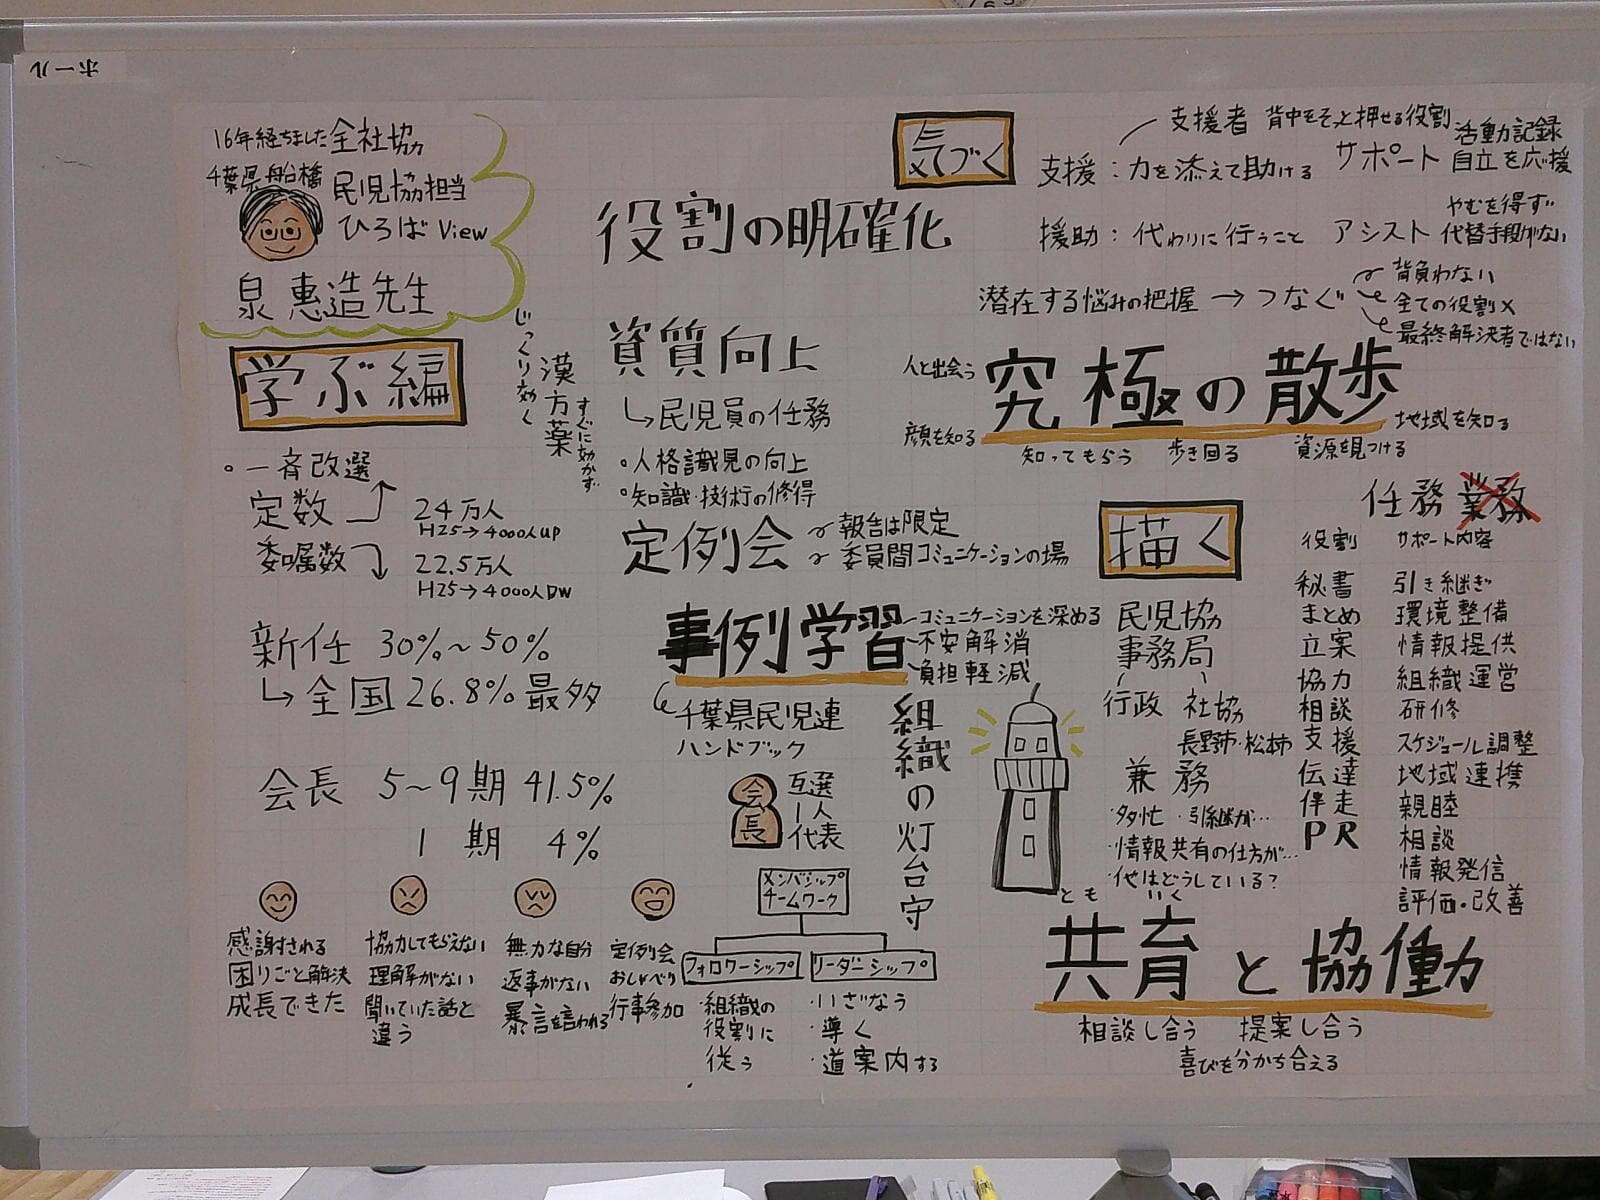 ホール
16年経ちました 全社協
千葉県船橋
民児協担当
ひろばView
泉 惠造先生
学ぶ編
じっくり効く
漢方薬
すぐに効かず
・一斉改選
定数
24万人
H25→4000人UP
委嘱数
22.5万人
H25→4000人DW
新任 30%~50%
↳全国26.8%最多
会長 5~9期 41.5%
1期 4%
感謝される
困りごと解決
成長できた
協力してもらえない
理解がない
聞いていた話と
違う
無力な自分
返事がない
暴言を言われる
定例会
おしゃべり
行事参加
役割の明確化
資質向上
↳民児員の任務
・人格識見の向上
・知識・技術の修得
定例会
報告は限定
委員間コミュニケーションの場
事例学習
コミュニケーションを深める
不安解消
負担軽減
千葉県民児連
ハンドブック
会長
互選
1人
代表
メンバシップ
チームワーク
フォロワーシップ
リーダーシップ
・組織の
役割に
従う
・いざなう
・導く
・道案内する
組織の灯台守
気づく
支援者 背中をそっと押せる役割
支援:力を添えて助ける サポート
活動記録
自立を応援
援助:代わりに行うこと アシスト
やむを得ず
代替手段がない
潜在する悩みの把握→つなぐ
背負わない
全ての役割×
最終解決者ではない
人と出会う
究極の散歩
顔を知る
地域を知る
知ってもらう 歩き回る 資源を見つける
描く
民児協
事務局
行政 社協
長野市・松本市
兼務
・多忙 ・引継が…
・情報共有の仕方が…
・他はどうしている?
任務 業務
役割 サポート内容
秘書 引き継ぎ
まとめ 環境整備
立案 情報提供
協力 組織運営
相談 研修
支援 スケジュール調整
伝達 地域連携
伴走 親睦
PR 相談
情報発信
評価・改善
とも いく
共育と協働
相談し合う 提案し合う
喜びを分かち合える